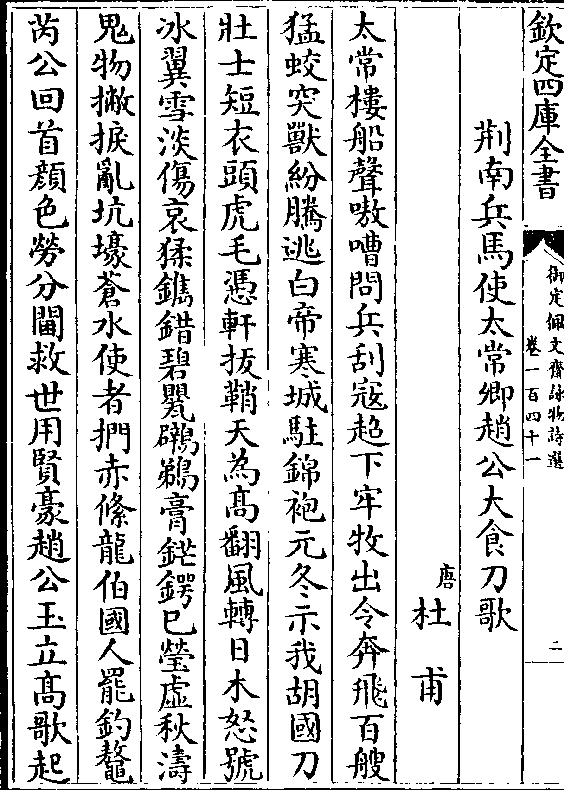 欽定四庫全書
御定佩文齋詠物詩選
卷一百四十一
二
荆南兵馬使太常卿趙公大食刀歌
唐
杜甫
太常樓船聲嗷嘈問兵刮寇趍下牢牧出令奔飛百艘
猛蛟突獸紛騰逃白帝寒城駐錦袍元冬示我胡國刀
壯士短衣頭虎毛憑軒拔鞘天為髙翻風轉日木怒號
冰翼雪淡傷哀猱鐫錯碧甖鸊鵜膏鋩鍔已瑩虚秋濤
鬼物撇捩亂坑壕蒼水使者捫赤絛龍伯國人罷釣鼇
芮公回首顔色勞分閫救世用賢豪趙公玉立髙歌起